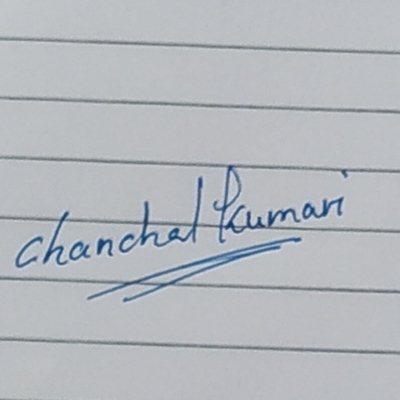 chanchal Kumari